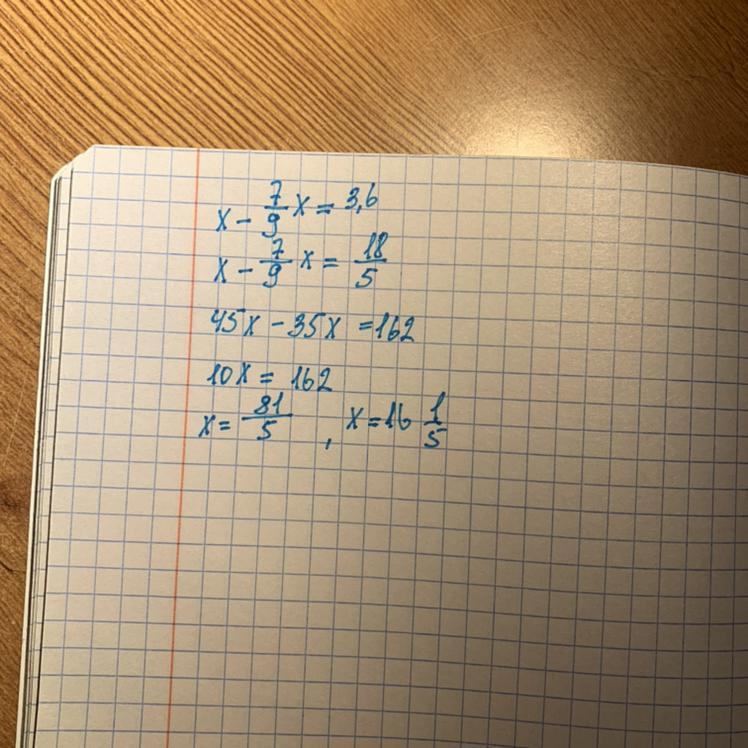 x - 7/9 x = 3,6
x - 7/9 x = 18/5
45x - 35x = 162
10x = 162
x = 81/5 , x = 16 1/5